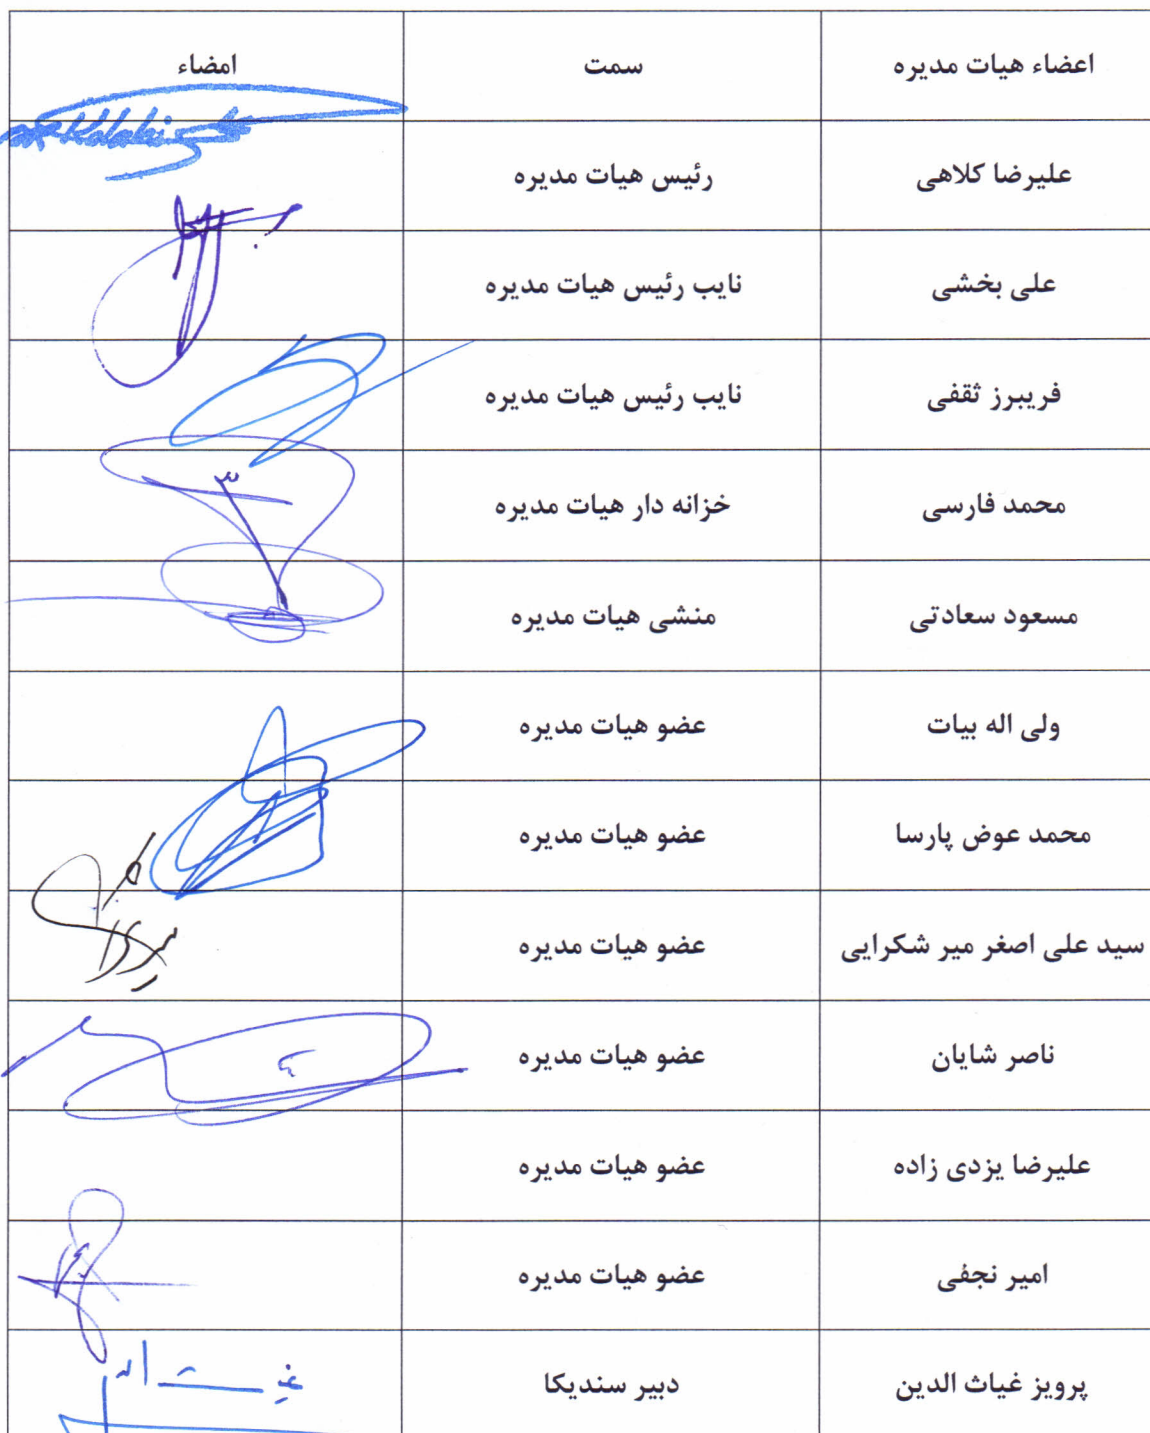 اعضاء هیات مدیره سمت امضاء
علیرضا کلاهی رئیس هیات مدیره
علی بخشی نایب رئیس هیات مدیره
فریبرز ثقفی نایب رئیس هیات مدیره
محمد فارسی خزانه دار هیات مدیره
مسعود سعادتی منشی هیات مدیره
ولی اله بیات عضو هیات مدیره
محمد عوض پارسا عضو هیات مدیره
سید علی اصغر میر شکرایی عضو هیات مدیره
ناصر شایان عضو هیات مدیره
علیرضا یزدی زاده عضو هیات مدیره
امیر نجفی عضو هیات مدیره
پرویز غیاث الدین دبیر سندیکا